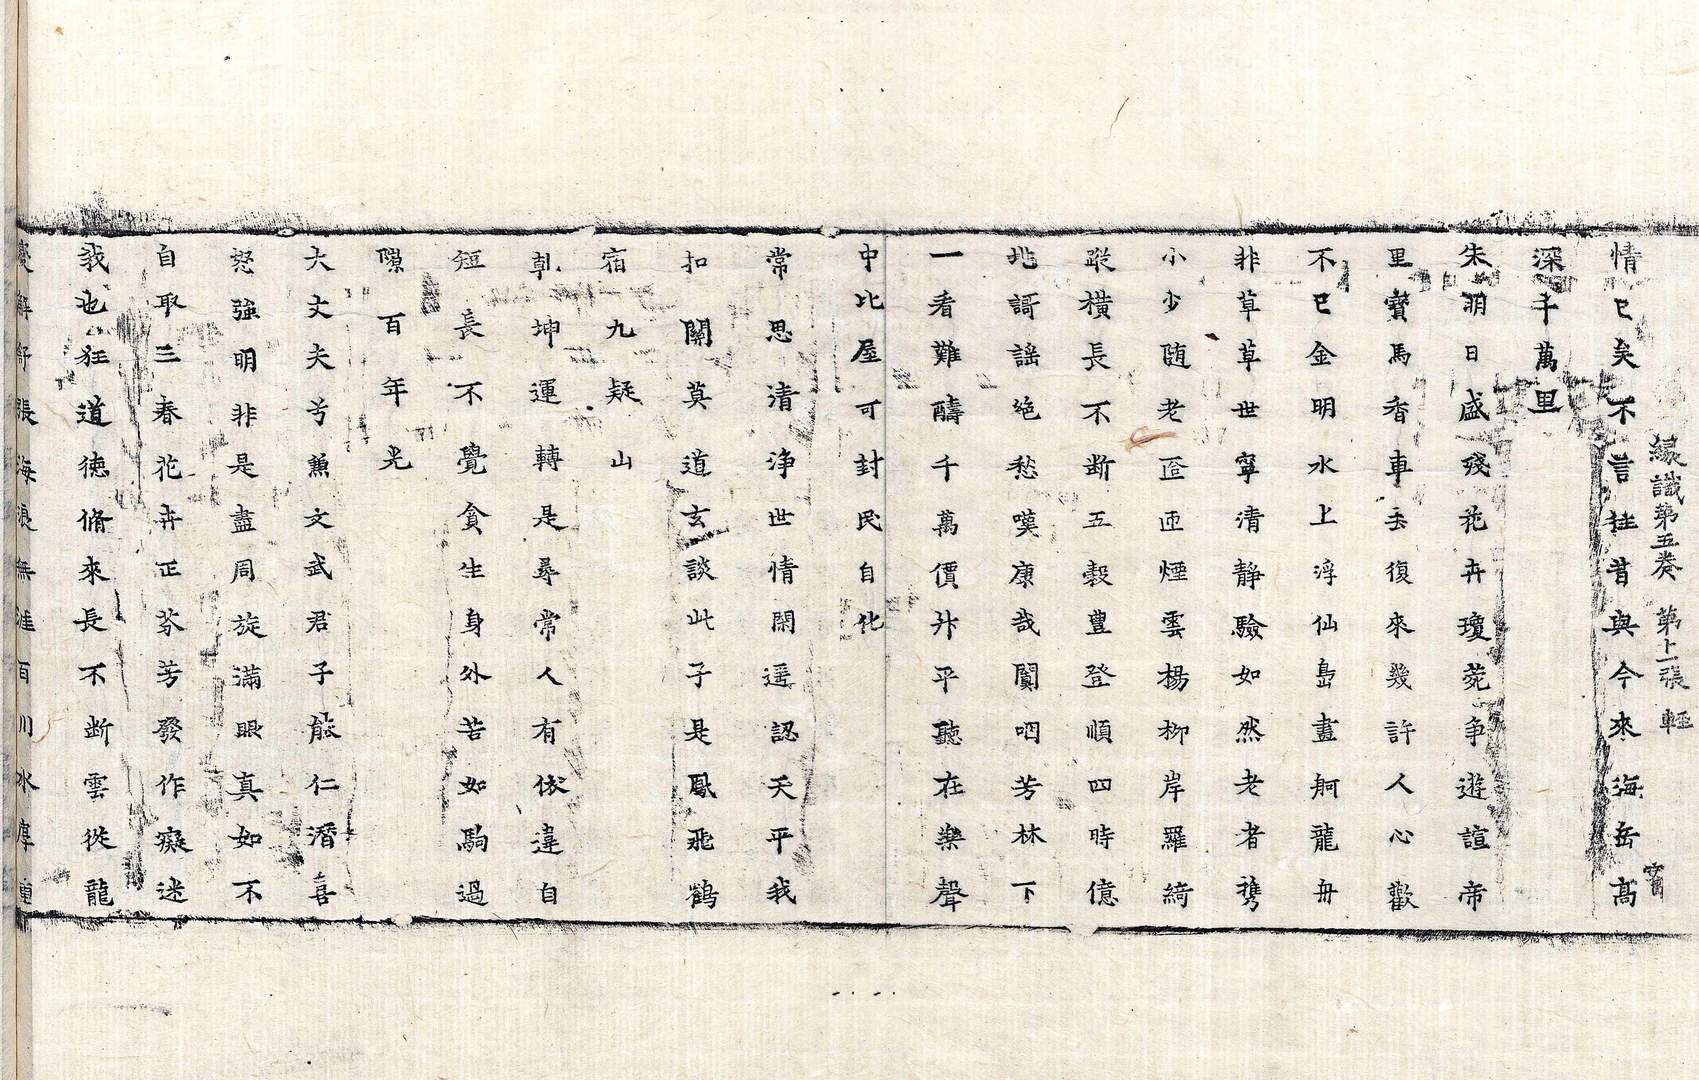 縁識第五巻 第十一張 輕
情已矣不言往昔與今來海岳高
深千萬里
朱明日盛殘花卉瓊苑争遊諠帝
里寳馬香車去復來幾許人心歡
不已金明水上浮仙島畫舸龍舟
非草草世寧清静驗如然老者携
小少随老匝迊煙雲楊柳岸羅綺
蹤横長不断五穀豊登順四時億
地謌謡絶愁嘆康哉闐咽芳林下
一看難醻千萬價井平聽在樂聲
中比屋可封民自化
常思清浄世情閑遥認天平我
扣關莫道玄談此子是鳳飛鶴
宿九疑山
乹坤運轉是尋常人有依違自
短長不覺貪生身外苦如駒過
隙百年光
大丈夫兮兼文武君子能仁潛喜
怒強明非是盡周旋滿眼真如不
自取三春花卉正芬芳發作癡迷
我也狂道徳脩來長不断雲從龍
張海浪無涯百川水